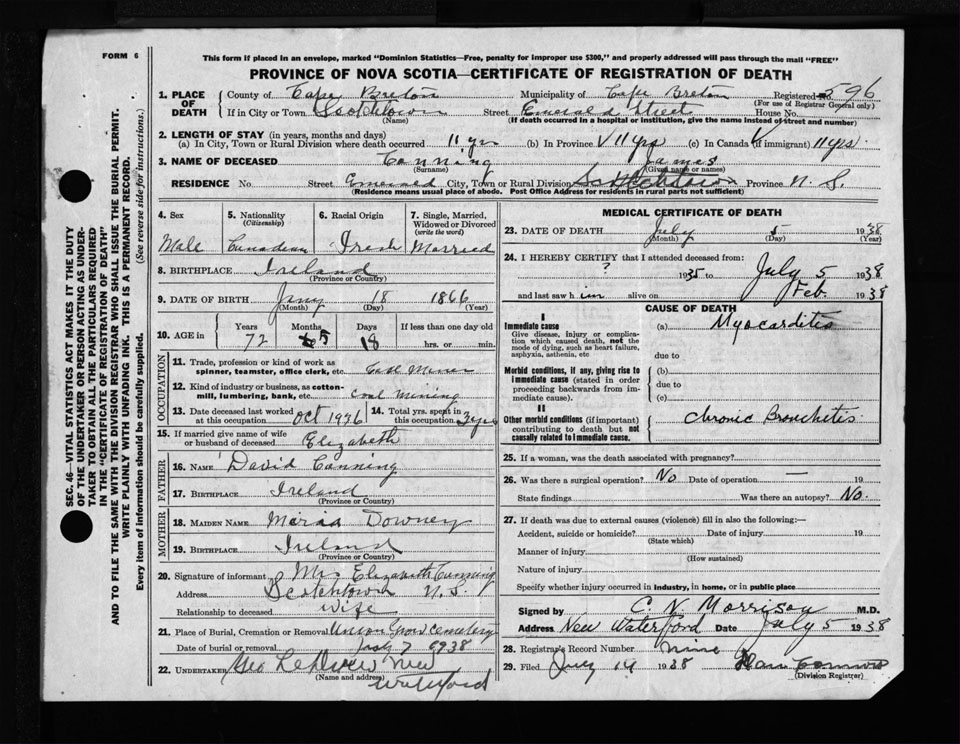 FORM 6
This form if placed in an envelope, marked "Dominion Statistics—Free, penalty for improper use $300," and properly addressed will pass through the mail "FREE"
PROVINCE OF NOVA SCOTIA—CERTIFICATE OF REGISTRATION OF DEATH
1. PLACE OF DEATH County of Cape Breton Municipality of Cape Breton Registered No. 596
(For use of Registrar General only)
If in City or Town Scotchtown Street Emerald Street House No.
(Name) (If death occurred in a hospital or institution, give the name instead of street and number)
2. LENGTH OF STAY (in years, months and days)
(a) In City, Town or Rural Division where death occurred 11 yrs (b) In Province 11 yrs (c) In Canada (if immigrant) 11 yrs
3. NAME OF DECEASED Canning James
(Surname) (Given name or names)
RESIDENCE No. Street Emerald City, Town or Rural Division Scotchtown Province N. S.
(Residence means usual place of abode. Post Office Address for residents in rural parts not sufficient)
4. Sex 5. Nationality (Citizenship) 6. Racial Origin 7. Single, Married, Widowed or Divorced (write the word)
Male Canadian Irish Married
8. BIRTHPLACE Ireland
(Province or Country)
9. DATE OF BIRTH Jany 18 1866
(Month) (Day) (Year)
10. AGE in Years Months Days If less than one day old
72 5 18 hrs. or min.
OCCUPATION
11. Trade, profession or kind of work as spinner, teamster, office clerk, etc. Coal Miner
12. Kind of industry or business, as cotton-mill, lumbering, bank, etc. Coal Mining
13. Date deceased last worked at this occupation Oct 1936 14. Total yrs. spent in this occupation
15. If married give name of wife or husband of deceased Elizabeth
FATHER
16. NAME David Canning
17. BIRTHPLACE Ireland
(Province or Country)
MOTHER
18. MAIDEN NAME Maria Downey
19. BIRTHPLACE Ireland
(Province or Country)
20. Signature of informant Mrs Elizabeth Canning
Address Scotchtown N. S.
Relationship to deceased Wife
21. Place of Burial, Cremation or Removal Union Grove Cemetery
Date of burial or removal July 7 1938
22. UNDERTAKER Geo New
(Name and address)
Waterford
MEDICAL CERTIFICATE OF DEATH
23. DATE OF DEATH July 5 1938
(Month) (Day) (Year)
24. I HEREBY CERTIFY that I attended deceased from:
? 1935 to July 5 1938
and last saw him alive on Feb. 1938
CAUSE OF DEATH
I
Immediate cause (a) Myocarditis
Give disease, injury or complication which caused death, not the mode of dying, such as heart failure, asphyxia, asthenia, etc
due to
Morbid conditions, if any, giving rise to immediate cause (stated in order proceeding backwards from immediate cause).
(b)
due to
(c)
II
Other morbid conditions (if important) contributing to death but not causally related to immediate cause.
Chronic Bronchitis
25. If a woman, was the death associated with pregnancy?
26. Was there a surgical operation? No Date of operation — 19
State findings Was there an autopsy? No.
27. If death was due to external causes (violence) fill in also the following:—
Accident, suicide or homicide? Date of injury 19
(State which)
Manner of injury
(How sustained)
Nature of injury
Specify whether injury occurred in industry, in home, or in public place
Signed by C. N. Morrison M.D.
Address New Waterford Date July 5 1938
28. Registrar's Record Number nine
29. Filed July 14 1938
(Division Registrar)
SEC. 46—VITAL STATISTICS ACT MAKES IT THE DUTY
OF THE UNDERTAKER OR PERSON ACTING AS UNDER-
TAKER TO OBTAIN ALL THE PARTICULARS REQUIRED
IN THE "CERTIFICATE OF REGISTRATION OF DEATH"
AND TO FILE THE SAME WITH THE DIVISION REGISTRAR WHO SHALL ISSUE THE BURIAL PERMIT.
WRITE PLAINLY WITH UNFADING INK. THIS IS A PERMANENT RECORD.
Every item of information should be carefully supplied. (See reverse side for instructions.)